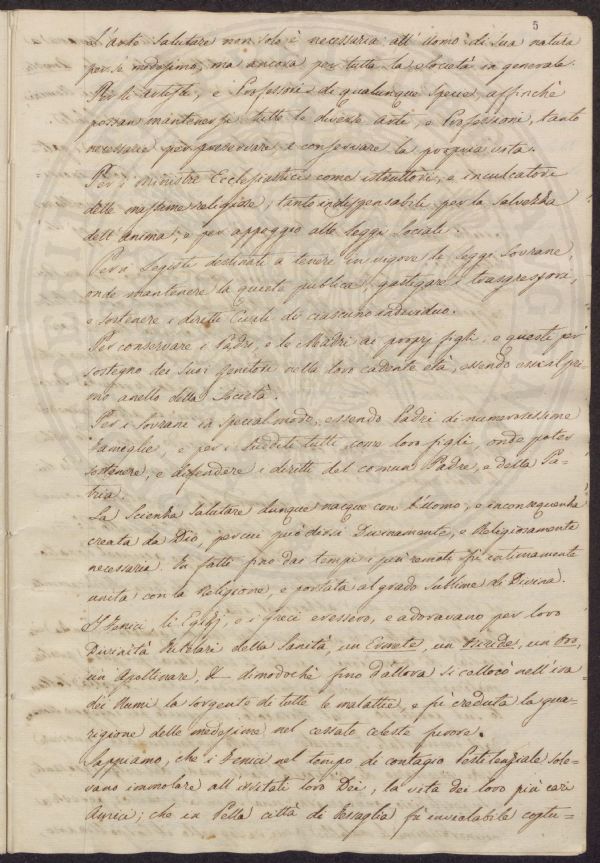 5
L'arte Salutare non solo è necessaria all'Uomo di sua natura
per se medesimo, ma ancora per tutta la Società in generale.
Per li Artisti, e Professori di qualunque Specie, affinchè
possan mantenersi tutte le diverse Arti, e Professioni, tanto
necessarie per preservare, e conservare la propria vita.
Per i ministri Ecclesiastici come istruttori, e inculcatori
delle massime religiose, tanto indispensabili per la Salvezza
dell'anima, e per appoggio alle leggi Sociali.
Per i Legisti destinati a tenere in vigore le leggi Sovrane,
onde mantenere la quiete publica, gastigare i trasgressori,
e sostenere i diretti Civili di ciascuno individuo.
Per conservare i Padri, e le Madri ai proprj figli, e questi per
sostegno dei Suoi Genitori nella loro cadente età, essendo essi al pri-
mo anello della Società.
Per i Sovrani in special modo, essendo Padri di numerosissime
Famiglie, e per i Sudditi tutti, come loro figli, onde poter
sostenere, e difendere i diretti del comun Padre, e della Pa-
tria.
La Scienza Salutare dunque nacque con l'Uomo, e in conseguenza
creata da Dio, per cui può dirsi Divinamente, e Religiosamente
necessaria. In fatti fino dai tempi i più remoti fù intimamente
unita con la Religione, e portata al grado Sublime di Divina.
I Fenici, li Egizj, e i Greci eressero, e adoravano per loro
Divinità Tutelari della Sanità, un Ermete, un Iside, un Oro,
un Apollinare, & dimodochè fino d'allora si collocò nell'ira
dei Numi la sorgente di tutte le malattie, e fù creduta la gua-
rigione delle medesime nel cessato celeste furore.
Sappiamo, che i Fenici nel tempo di contagio Pestilenziale sole-
vano immolare all'irritati loro Dei, la vita dei loro più cari
Amici; che in Pella città di Tessaglia fù inviolabile costu-